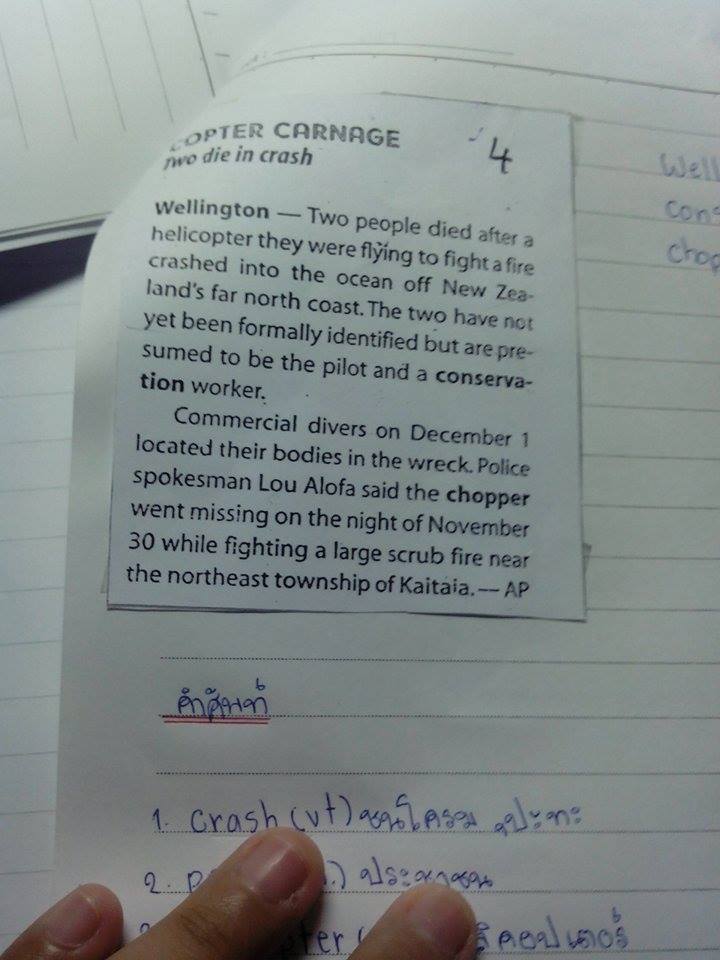 COPTER CARNAGE
4
Two die in crash
Wellington — Two people died after a
helicopter they were flying to fight a fire
crashed into the ocean off New Zea-
land's far north coast. The two have not
yet been formally identified but are pre-
sumed to be the pilot and a conserva-
tion worker.
Commercial divers on December 1
located their bodies in the wreck. Police
spokesman Lou Alofa said the chopper
went missing on the night of November
30 while fighting a large scrub fire near
the northeast township of Kaitaia. — AP
Well
cons
chop
คำศัพท์
1. crash (vt) ชนโครม, ปะทะ
2. p .) ประชาชน
pter ( ลิคอปเตอร์